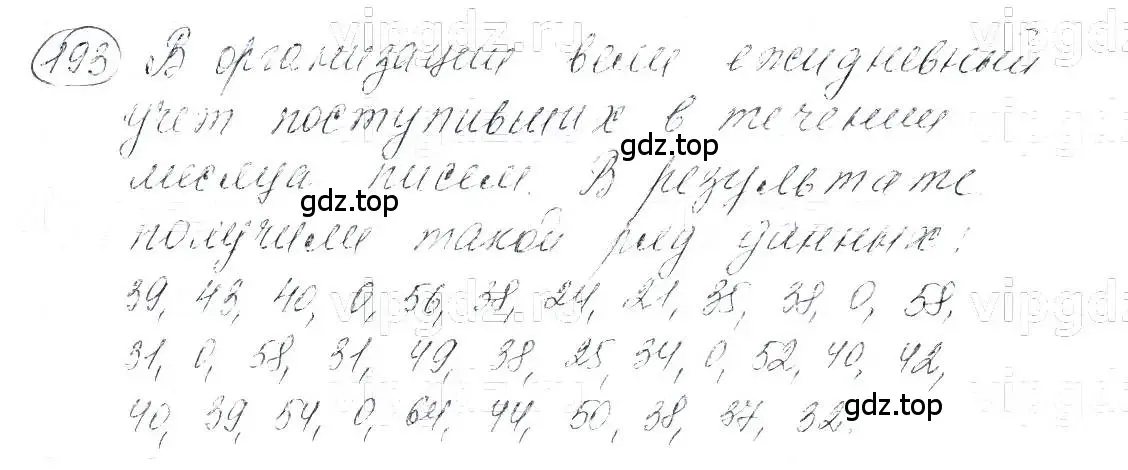 193 В организации вели ежидневный
учет поступивших в течении
месяца писем. В результате
получили такой ряд данных:
39, 43, 40, 0, 56, 38, 24, 21, 35, 38, 0, 58,
31, 0, 58, 31, 49, 38, 25, 34, 0, 52, 40, 42,
40, 39, 54, 0, 64, 44, 50, 38, 37, 32.
gdz.top
gdz.top
gdz.top
vipgdz.ru
vipgdz.ru
vipgdz
vipgdz